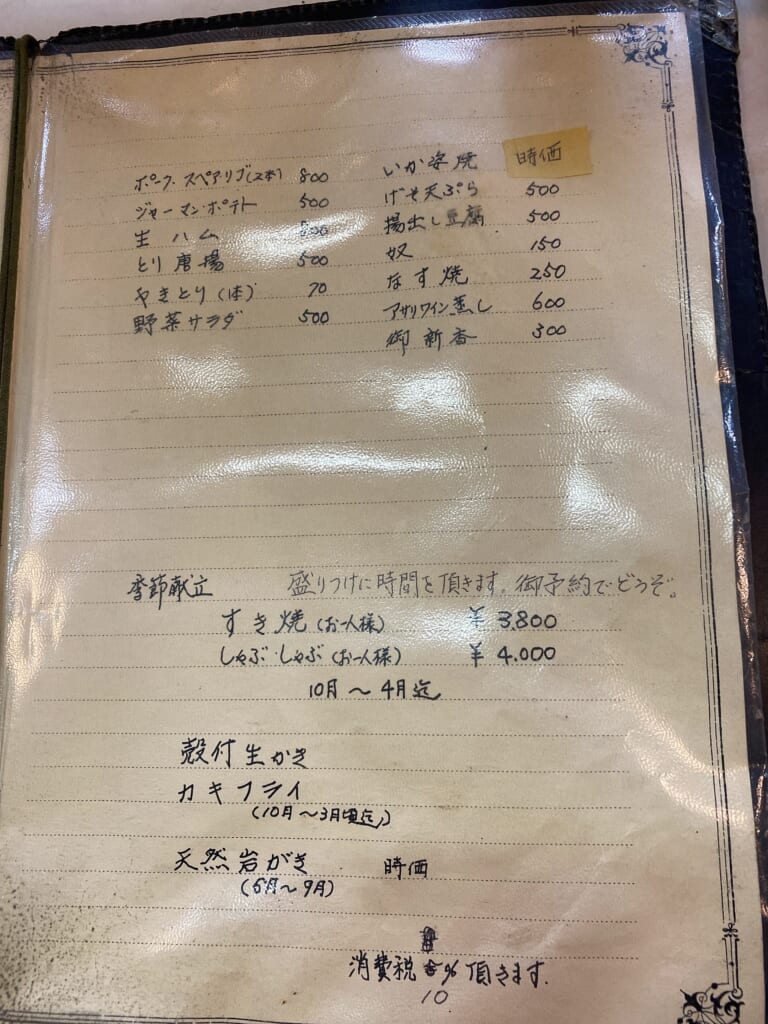 ポーク・スペアリブ(2本) 800
ジャーマン・ポテト 500
生ハム 800
とり唐揚 500
やきとり(1本) 70
野菜サラダ 500
いか姿焼 時価
げそ天ぷら 500
揚出し豆腐 500
奴 150
なす焼 250
アサリワイン蒸し 600
御新香 300
季節献立 盛りつけに時間を頂きます。御予約でどうぞ。
すき焼(お一人様) ¥3.800
しゃぶ・しゃぶ(お一人様) ¥4.000
10月~4月迄
殻付生かき
カキフライ
(10月~3月頃迄)
天然岩がき 時価
(6月~9月)
消費税 % 頂きます.
10